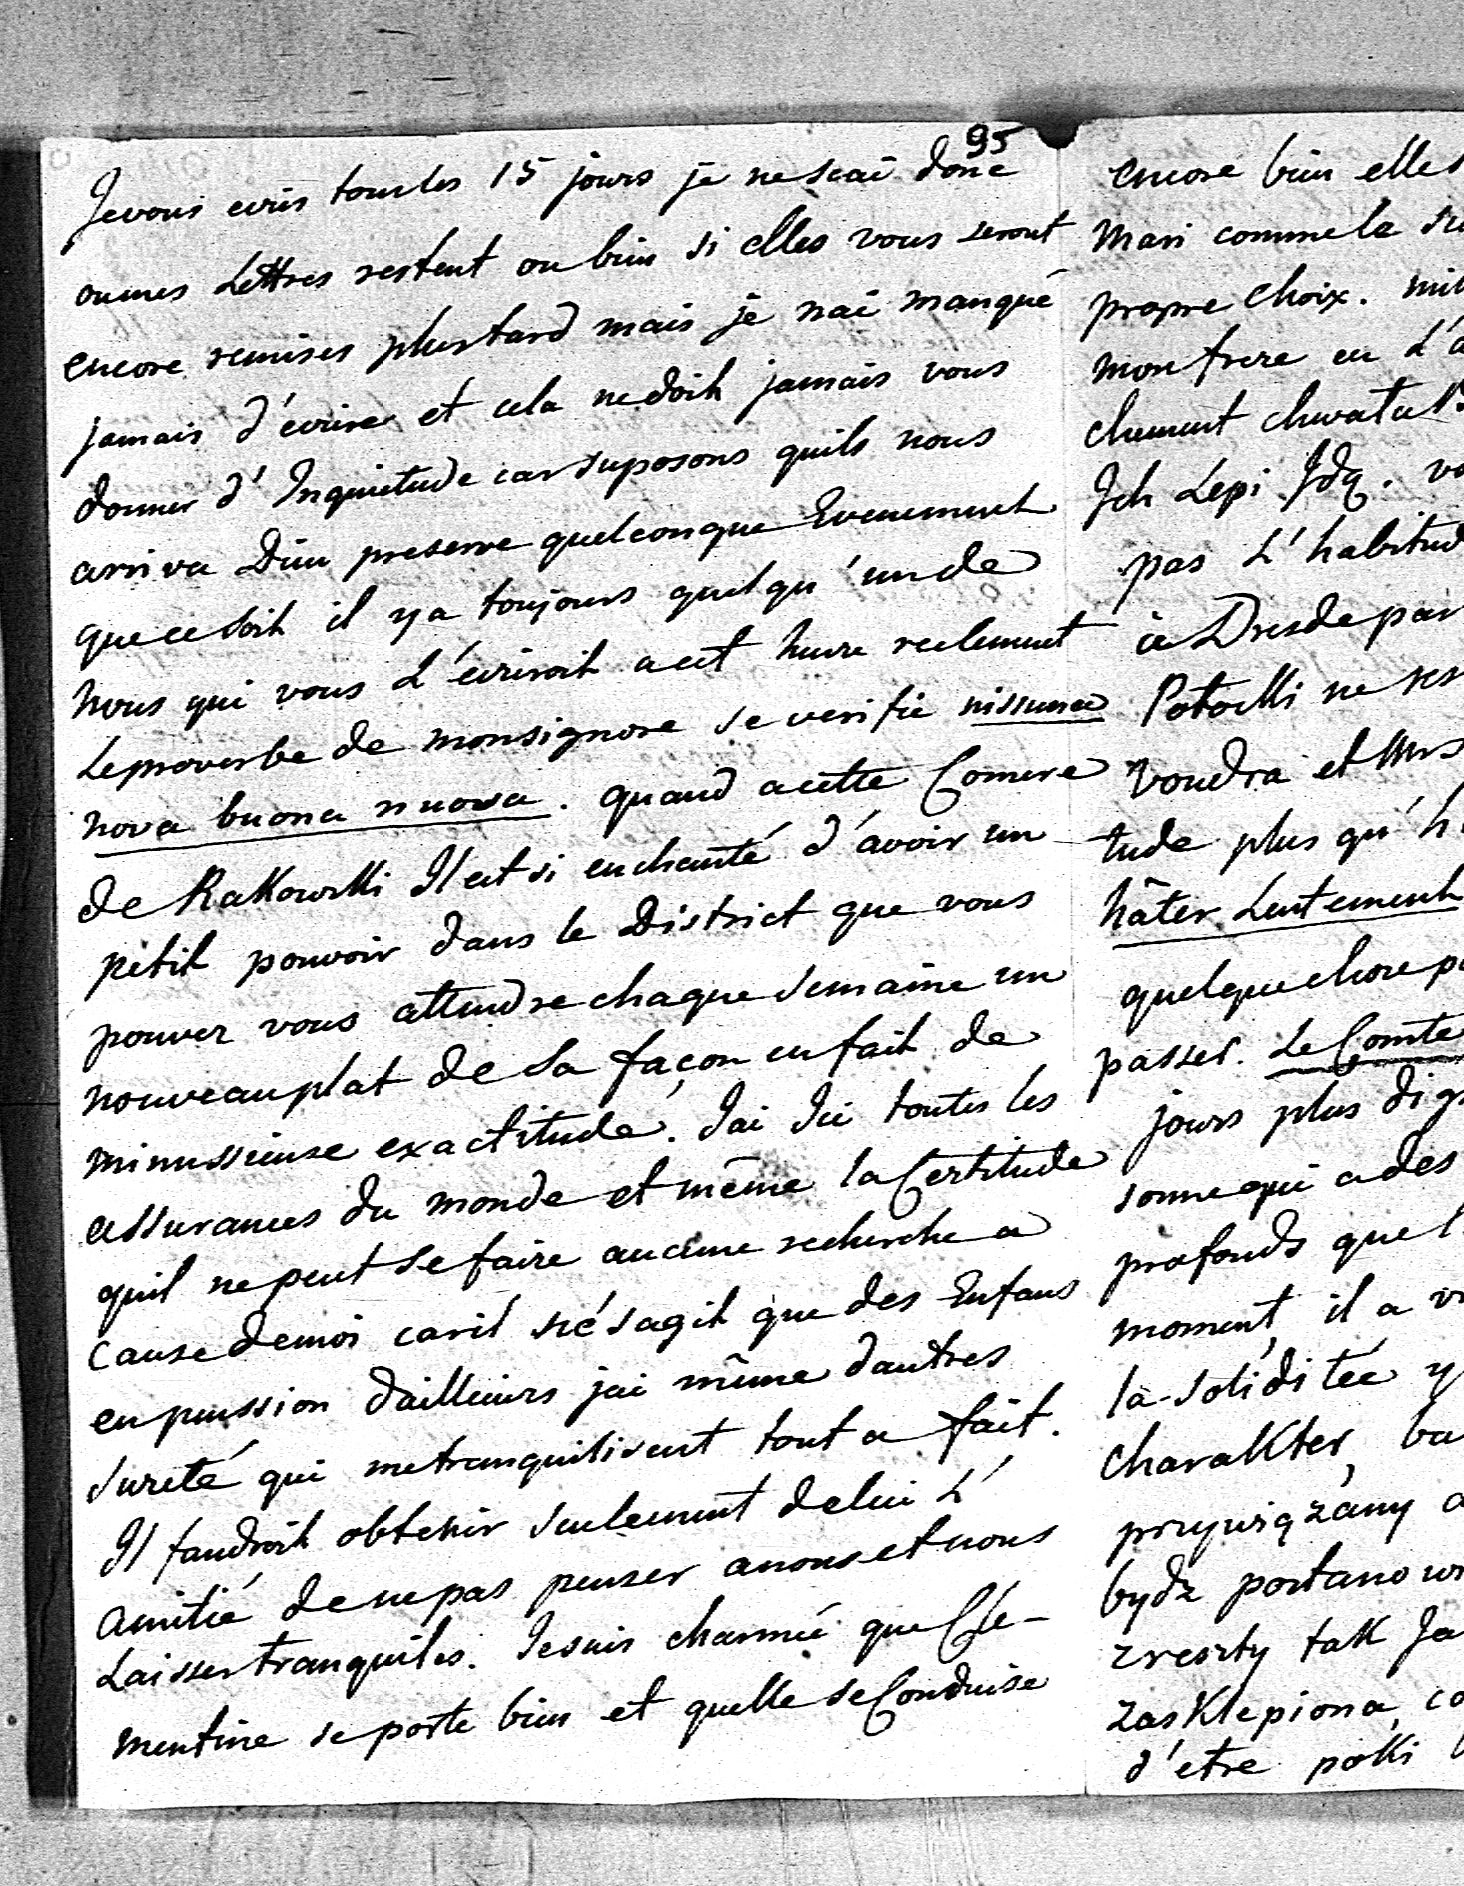 95
Je vous ecris tous les 15 jours je ne scai donc
ou mes Lettres restent ou bien si elles vous seront
encore remises plus tard mais je nai manqué
jamais d'écrire et cela ne doit jamais vous
donner d'Inquietude car suposons quils nous
arriva Dieu preserve quelconque Evenement
que ce soit il y a toujours quelqu'un de
nous qui vous L'écriroit a cet heure reelement
Le proverbe de monsignore se verifie nissuna
nova buona nuova. quand a cette Comere
de Rakowski Il est si enchanté d'avoir un
petit pouvoir dans le District que vous
pouvez vous attendre chaque semaine un
nouveau plat de Sa façon en fait de
minussieuse exactitude. Jai Ici toutes les
assurances du monde et même la Certitude
quil ne peut se faire aucune recherche a
cause de moi car il ne s'agit que des Enfans
en pension dailleurs jai même dautres
sureté qui me tranquilisent tout a fait.
Il faudroit obtenir seulement de lui L'
amitié de ne pas penser a nous et nous
Laisser tranquiles. Je suis charmée que Clé-
mentine se porte bien et quelle se Conduise
encore bien elles
Mari comme la
propre choix.
mon frere en L'a
Ich Lepi Jdą.
pas L'habitud
a Dresde par
Potocki ne
voudra et
tude plus qu'h
hâter Lentement
quelque chose
passer. Le Comte
jours plus dig
sonne qui a des
profonds que l
moment, il a
la Soliditée y
charakter, ba
przywiązany a
bydz postanow
zreszty tak Ja
zasklepiona, co
d'etre polki